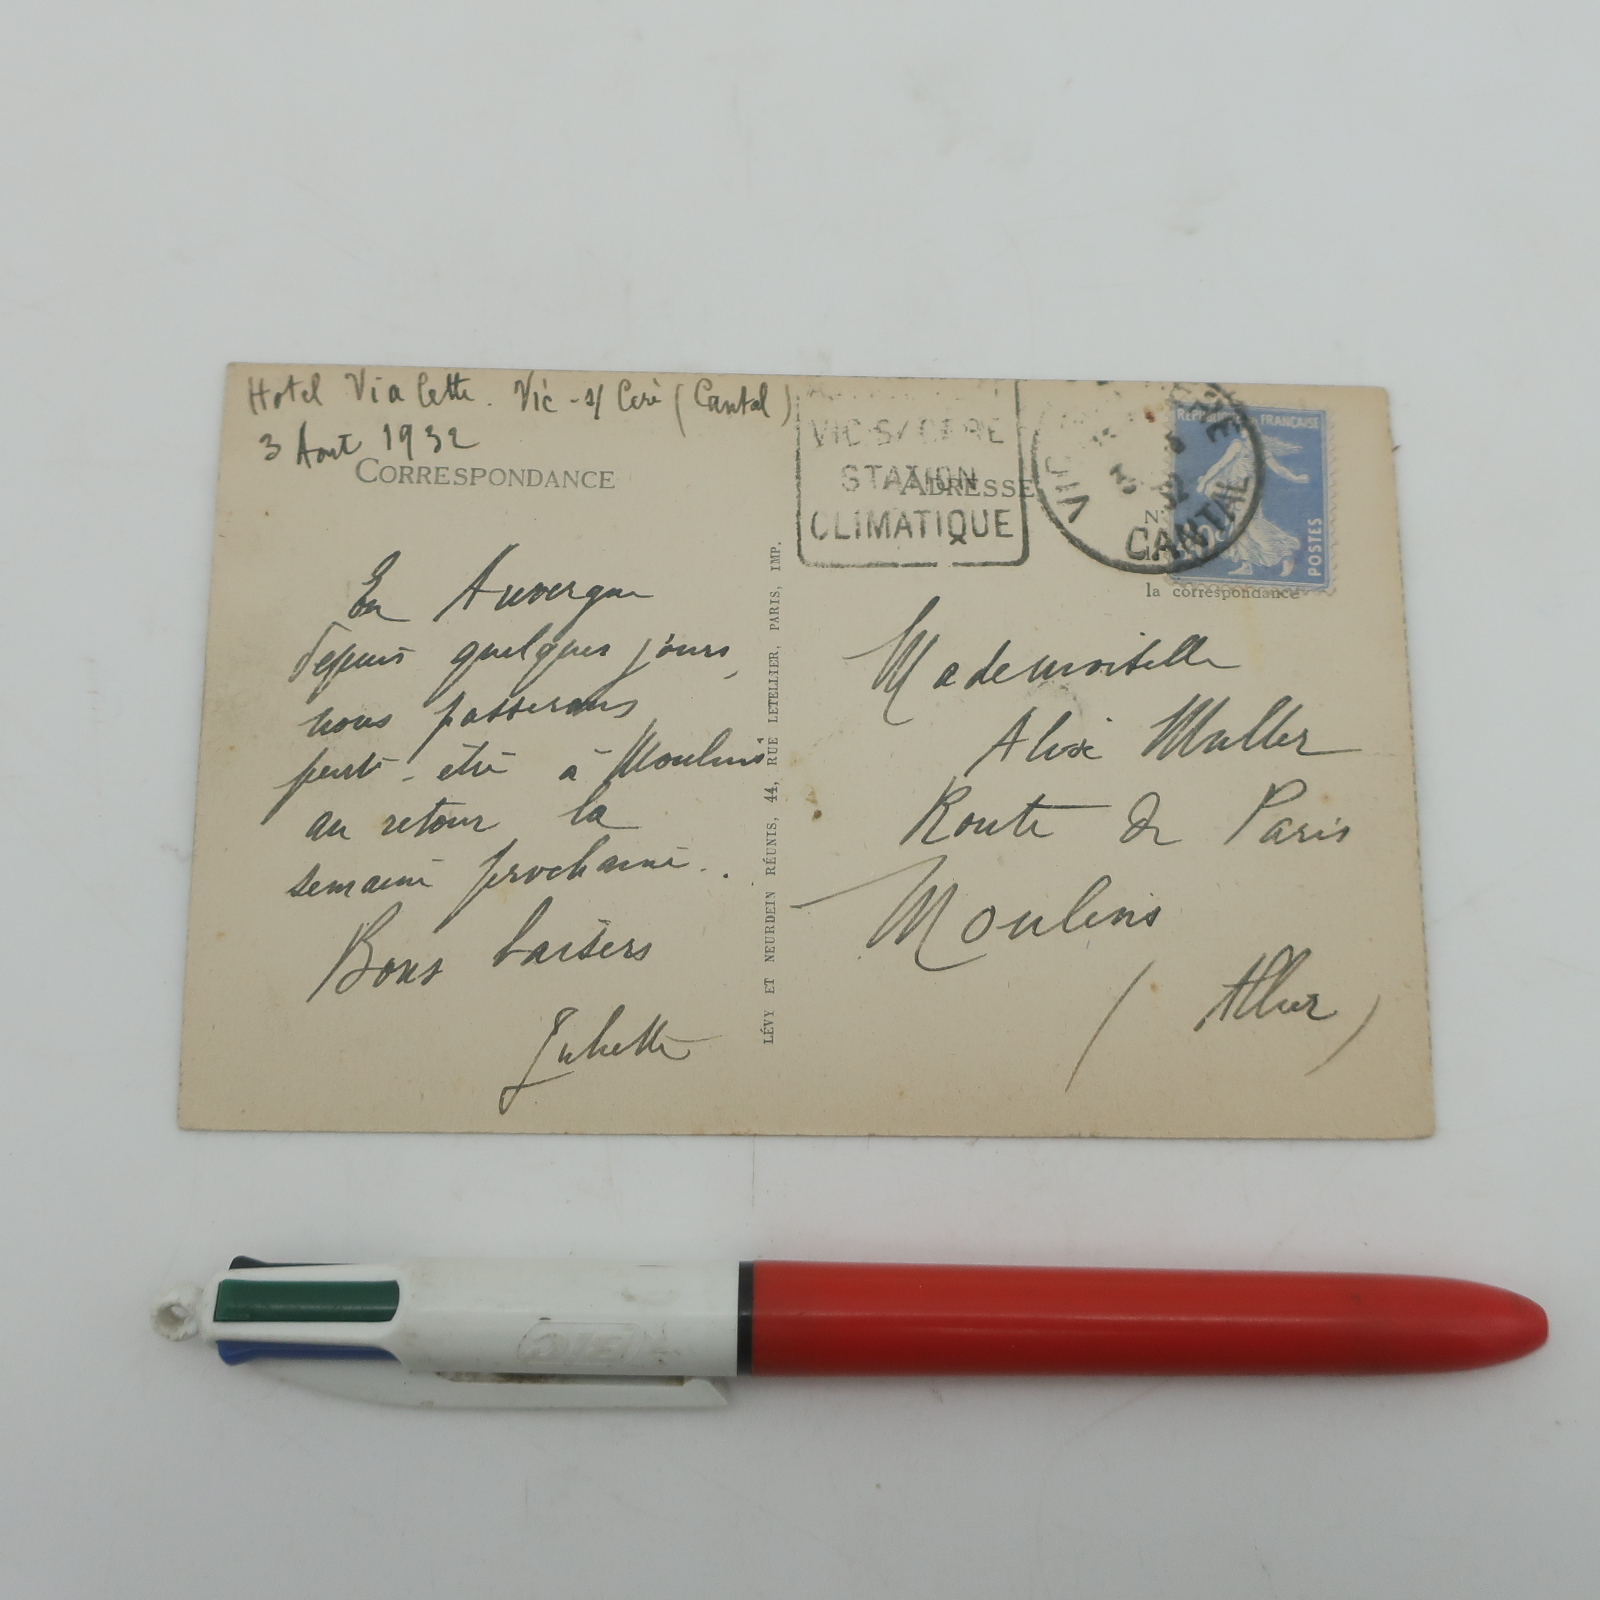 Hotel Vialette. Vic-s/ Cère (Cantal)
3 Aout 1932
CORRESPONDANCE
En Auvergne
depuis quelques jours,
nous passerons
peut-être à Moulins
au retour la
semaine prochaine..
Bons baisers
Juliette
LÉVY ET NEURDEIN RÉUNIS, 44, RUE LETELLIER, PARIS, IMP.
VIC-S/ CERE
STATION
CLIMATIQUE
ADRESSE
VIC
CANTAL
REPUBLIQUE FRANÇAISE
POSTES
la correspondance
Mademoiselle
Alice Muller
Route de Paris
Moulins
(Allier)
BIC